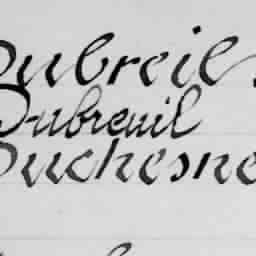 Dubreil
Dubreuil
Duchesne